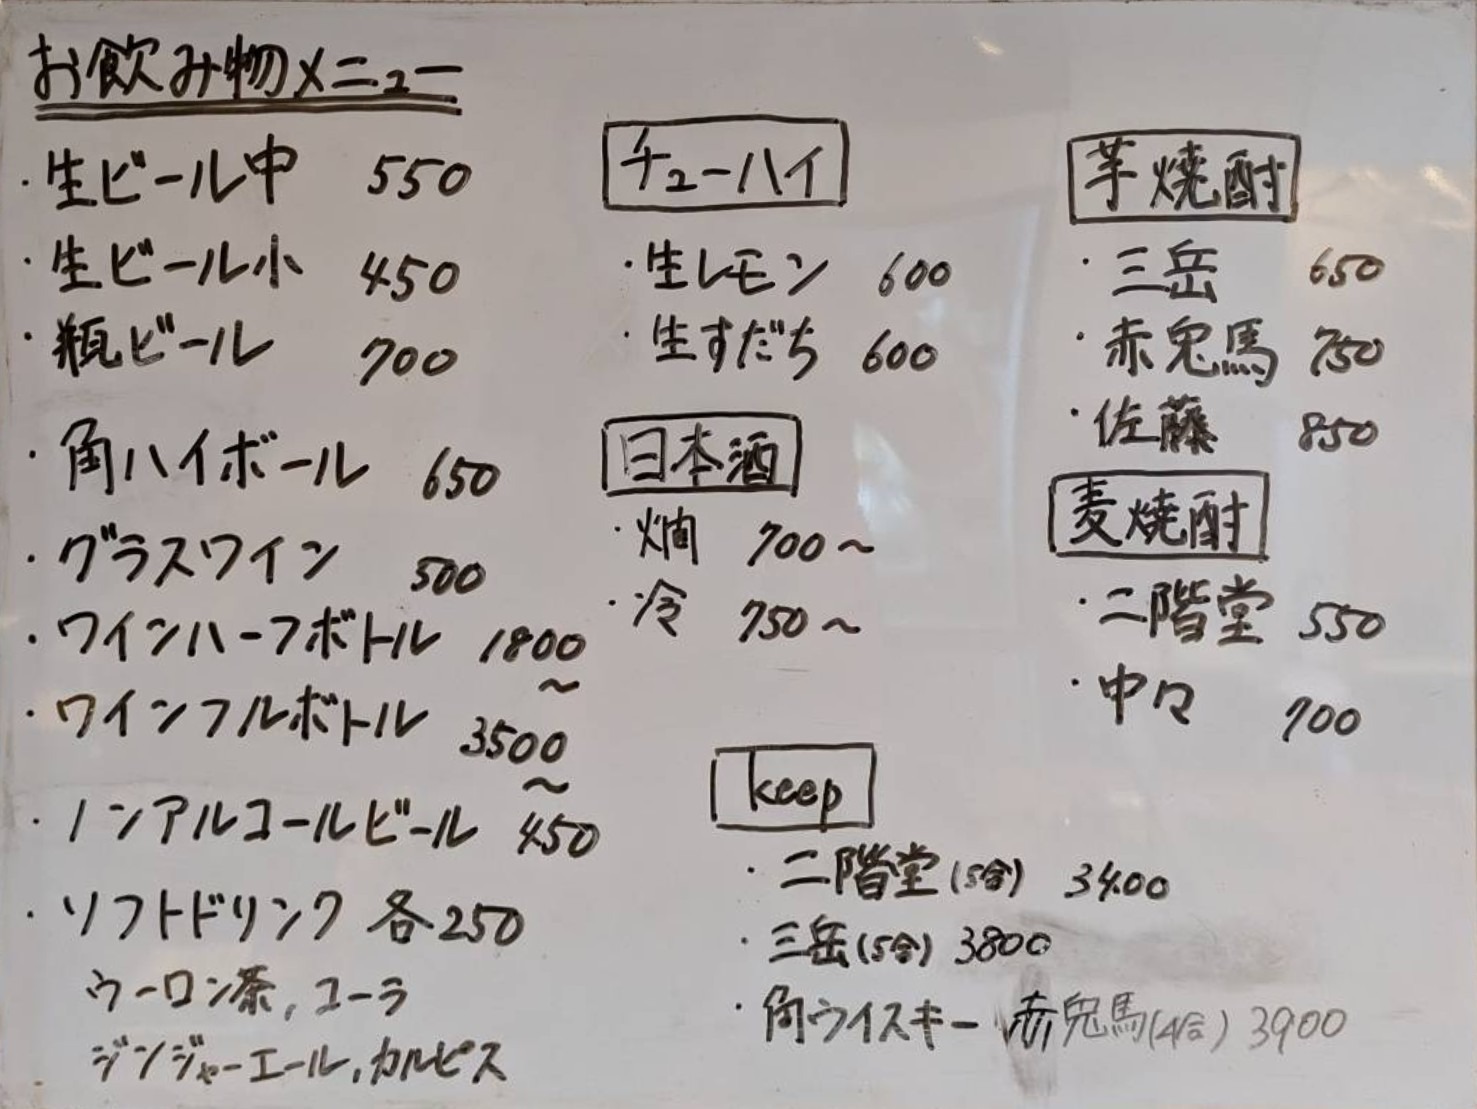 お飲み物メニュー
・生ビール中 550
・生ビール小 450
・瓶ビール 700
・角ハイボール 650
・グラスワイン 500
・ワインハーフボトル 1800～
・ワインフルボトル 3500～
・ノンアルコールビール 450
・ソフトドリンク 各250
ウーロン茶, コーラ
ジンジャーエール, カルピス
チューハイ
・生レモン 600
・生すだち 600
日本酒
・燗 700～
・冷 750～
芋焼酎
・三岳 650
・赤兎馬 750
・佐藤 850
麦焼酎
・二階堂 550
・中々 700
keep
・二階堂(5合) 3400
・三岳(5合) 3800
・角ウイスキー 赤兎馬(4合) 3900